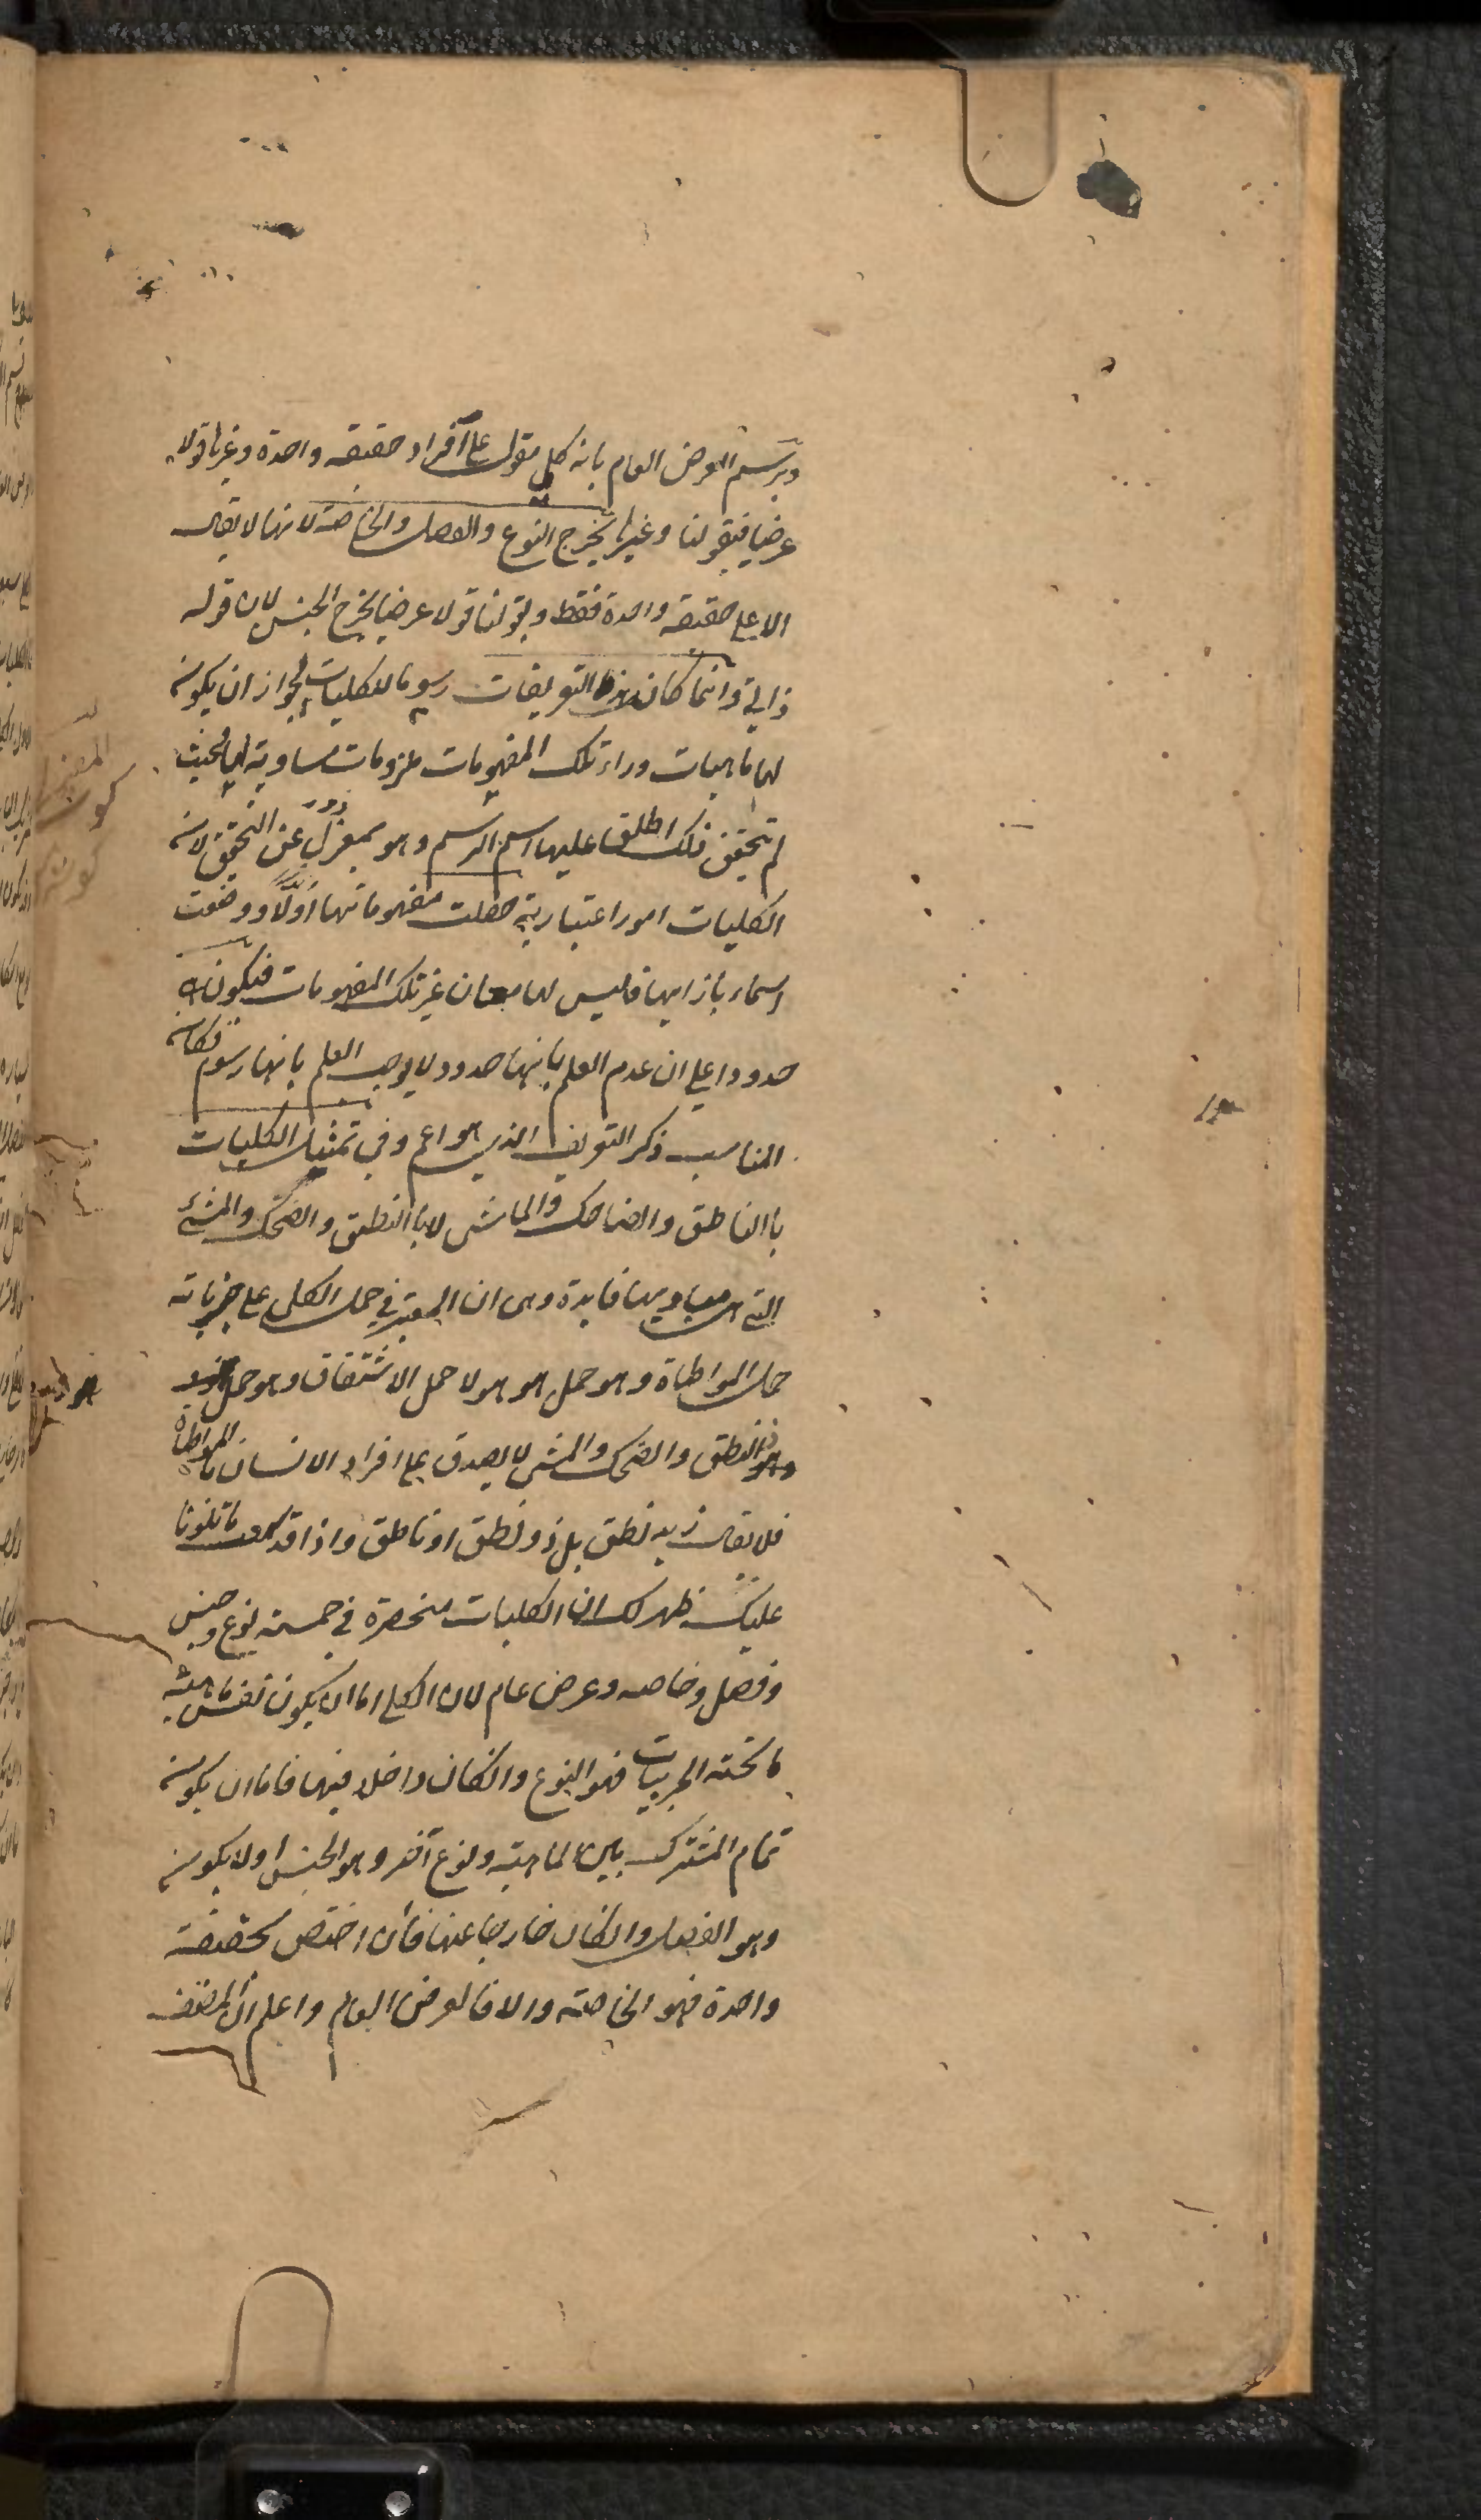 ويرسم العرض العام بانه كلي مقول على افراد حقيقة واحدة وغيرها قولا
عرضيا فبقولنا وغيرها يخرج النوع والفصل والخاصة لانها لا يقال
الا على حقيقة واحدة فقط وبقولنا قولا عرضيا يخرج الجنس لان قوله
ذاتي وانما كان هذه التعريفات رسوما للكليات لجواز ان يكون
لها ماهيات وراء تلك المفهومات ملزومات مساوية لها فحيث
لم تحقق ذلك اطلق عليها اسم الرسم وهو بمعزل عن التحقيق لان
الكليات امور اعتبارية حصلت مفهوماتها اولا ووضعت
اسماء بازايها فليس لها معان غير تلك المفهومات فيكون
حدودا على ان عدم العلم بانها حدود لا يوجب العلم بانها رسوم فكان
المناسب ذكر التعريف الذي هو اعم وفي تمثيل الكليات
باالناطق والضاحك والماشي لا باالنطق والضحك والمشي
التي هي مباديها فايدة وهي ان المعتبر في حمل الكلي على جزياته
حمل المواطاة وهو حمل هو هو لا حمل الاشتقاق وهو حمل
والنطق والضحك والمشي لا يصدق على افراد الانسان بالمواطاة
فلا يقال زيد نطق بل ذو نطق او ناطق واذا قد سمعت ما تلونا
عليك ظهر لك ان الكليات منحصرة في خمسة نوع وجنس
وفصل وخاصه وعرض عام لان الكلي اما ان يكون نفس ماهية
ما تحته الجزييات فهو النوع وانكان داخلا فيها فاما ان يكون
تمام المشترك بين الماهية ونوع آخر وهو الجنس اولا يكون
وهو الفصل وانكان خارجا عنها فان اختص بحقيقة
واحدة فهو الخاصة والا فالعرض العام واعلم ان المصنف